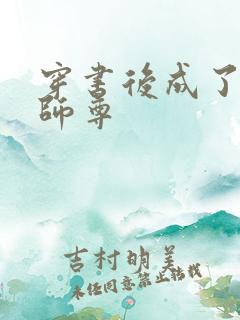 穿書後成了
師尊
吉村明美
未任同意禁止轉載